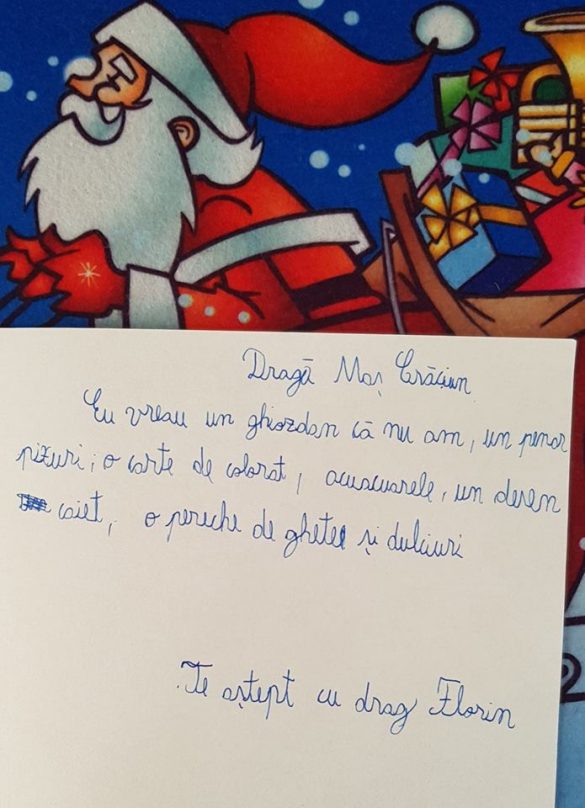 Dragă Moș Crăciun
Eu vreau un ghiozdan că nu am, un penar
pixuri, o carte de colorat, acuacuarele, un desen
caiet, o pereche de ghete și dulciuri
Te aștept cu drag Florin